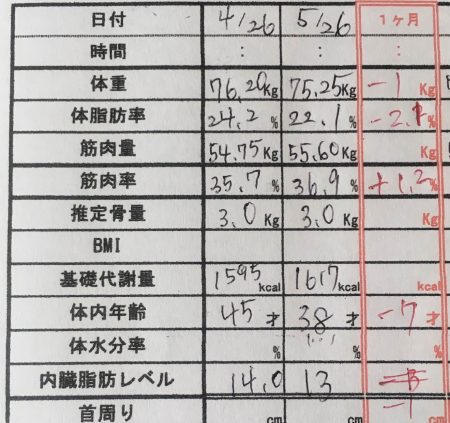 日付 4/26 5/26 1ヶ月
時間 : : :
体重 76.20Kg 75.25Kg -1Kg
体脂肪率 24.2% 22.1% -2.1%
筋肉量 54.75Kg 55.60Kg Kg
筋肉率 35.7% 36.9% +1.2%
推定骨量 3.0Kg 3.0Kg Kg
BMI
基礎代謝量 1595kcal 1617kcal kcal
体内年齢 45才 38才 -7才
体水分率 % % %
内臓脂肪レベル 14.0 13
首周り cm cm -1 cm